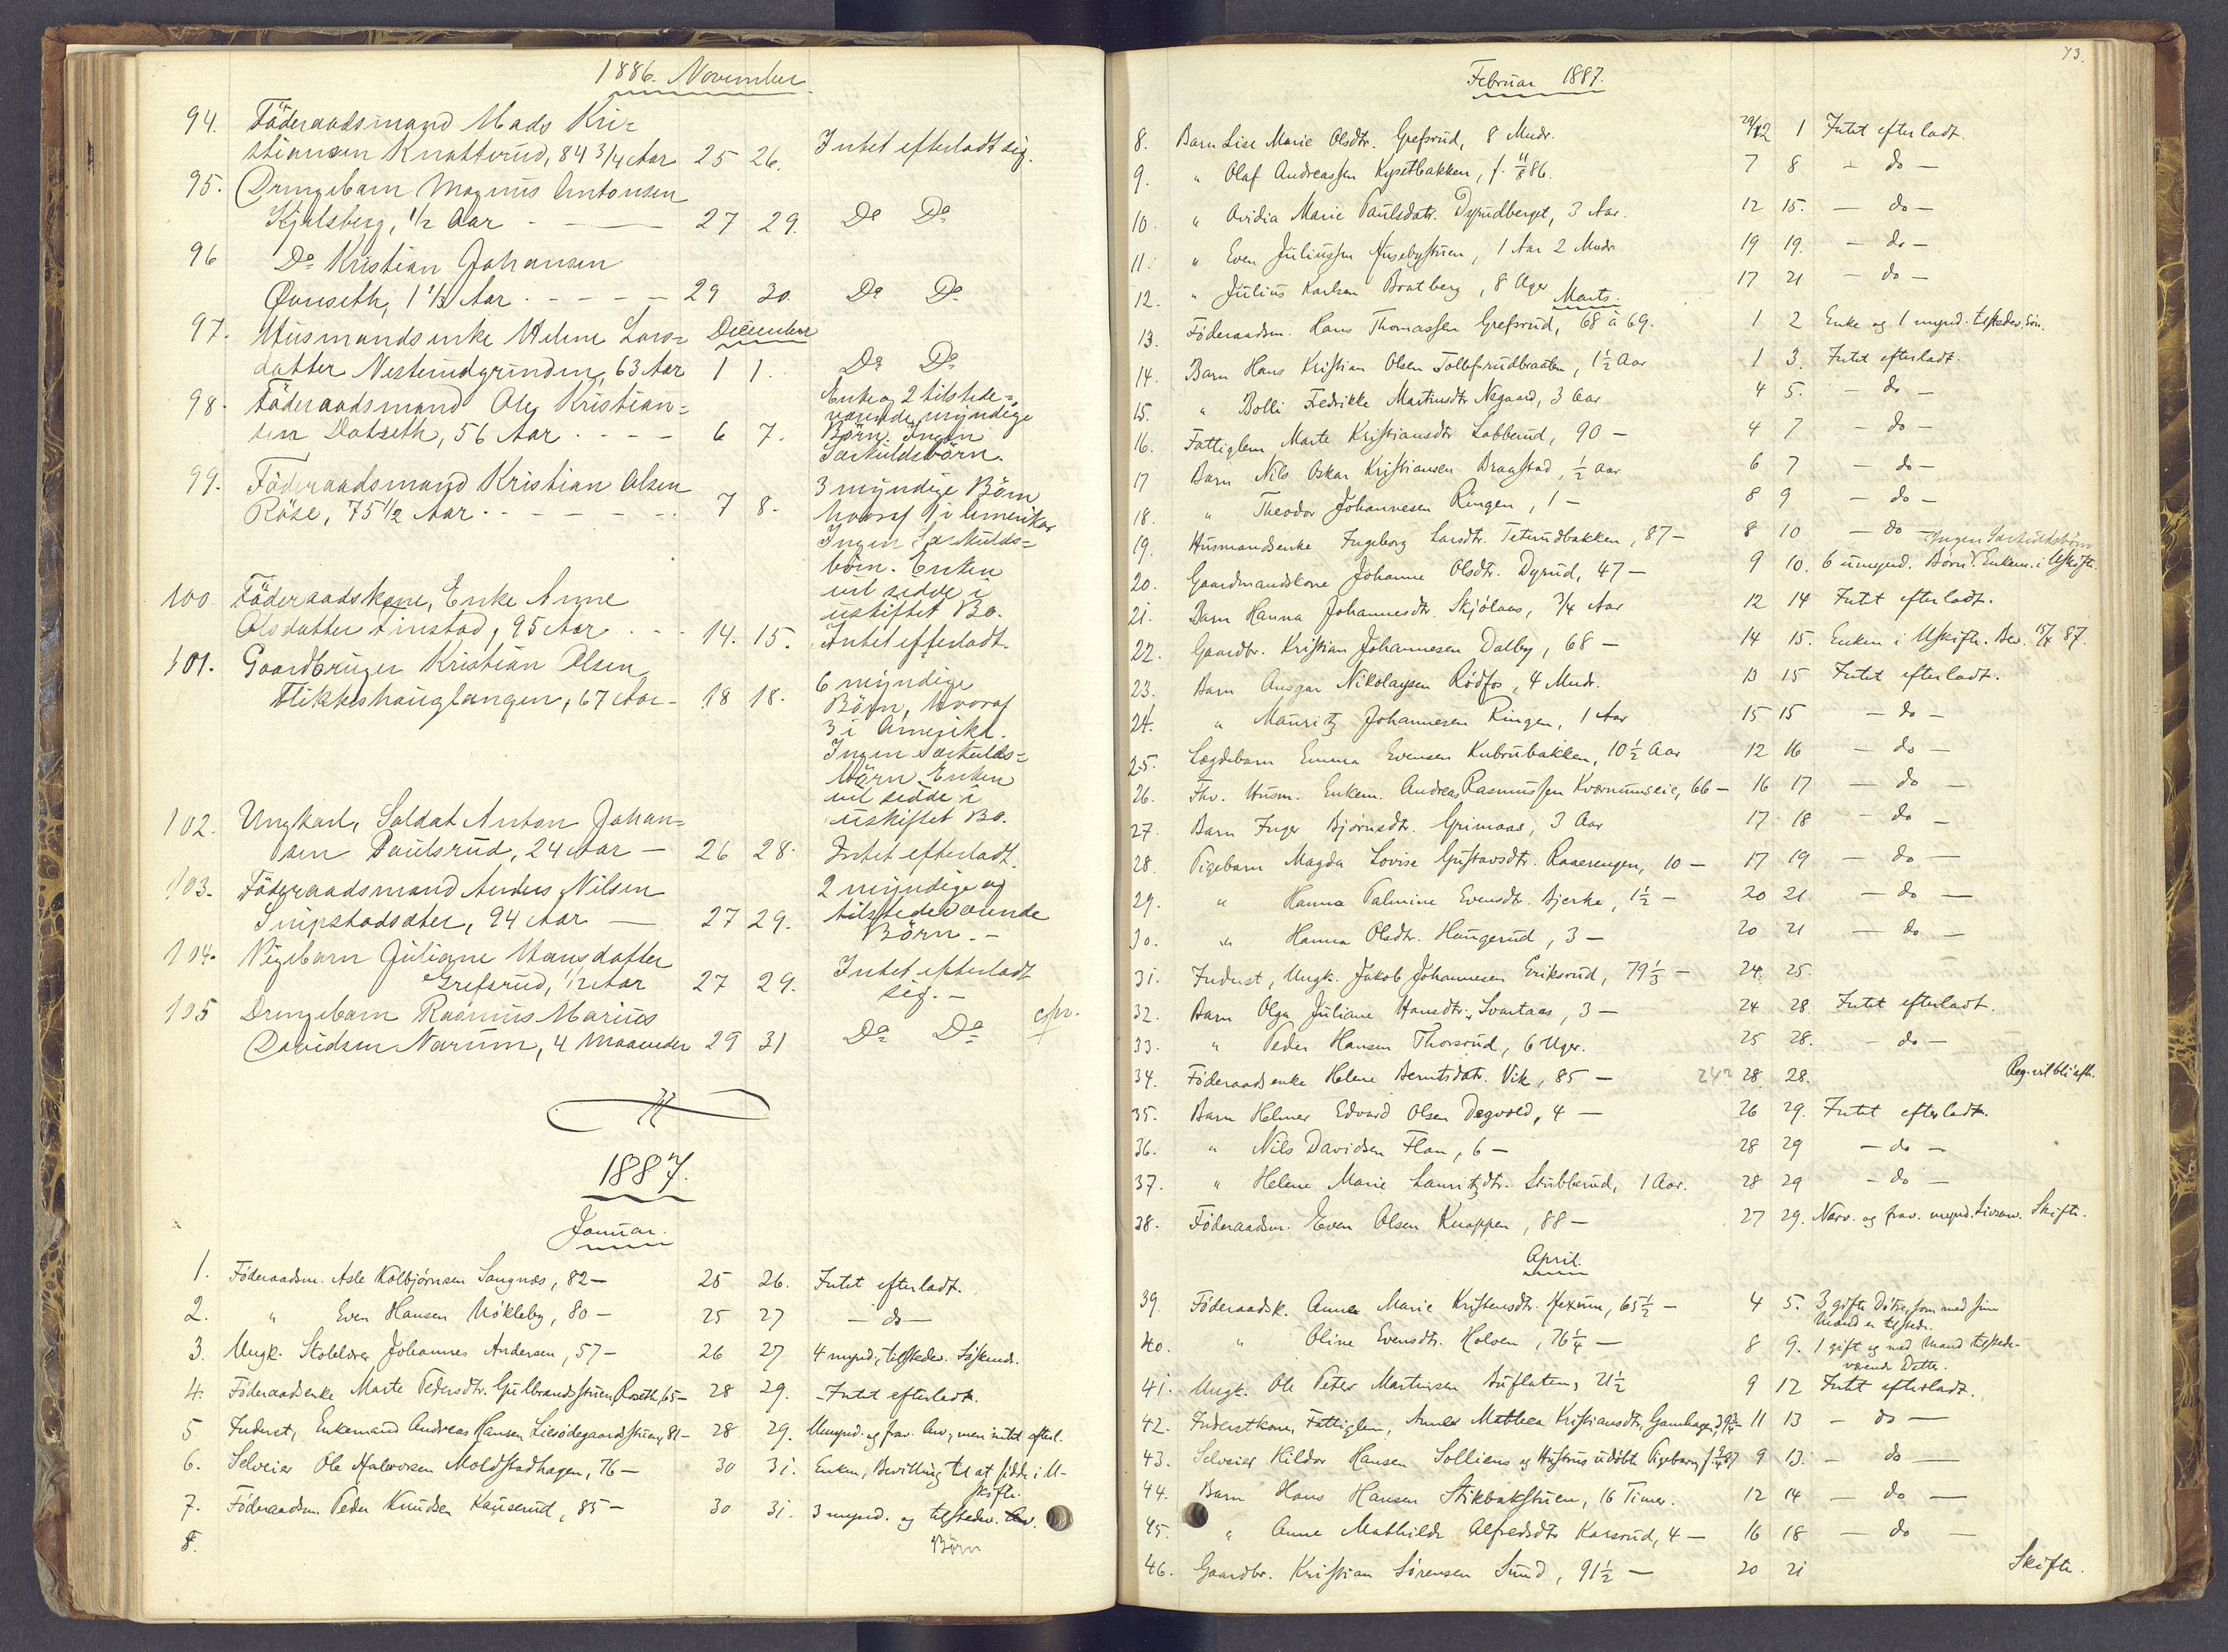 1886. November
94. Föderaadsmand Mads Kri=
stiansen Knatterud, 84 3/4 Aar 25 26. Intet efterladt sig.
95. Drengebarn Magnus Antonsen
Kjølsberg, 1/2 Aar - 27 29. Do Do
96 Do Kristian Johansen
Qvuseth, 1 1/3 Aar - - - - 29 30. Do Do
97. Husmandsenke Helene Lars= December
datter Nesterudgrinden, 63 Aar 1 1. Do Do
98. Föderaadsmand Ole Kristian=
sen Dotseth, 56 Aar - - - 6 7. Enke og 2 tilstede=
værende myndige
Börn. Ingen
Særkuldsbörn.
99. Föderaadsmand Kristian Olsen
Röise, 75 1/2 Aar - - - - 7 8. 3 myndige Börn
hvoraf 1 i Amerika
Ingen Særkulds=
börn. Enken
vil sidde i
uskiftet Bo.
100. Föderaadskone, Enke Anne
Olsdatter Finstad, 95 Aar - - 14. 15. Intet efterladt.
101. Gaardbruger Kristian Olsen
Flikkeshauglangen, 67 Aar - 18 18. 6 myndige
Börn, hvoraf
3 i Amerika.
Ingen Særkulds=
börn. Enken
vil sidde i
uskiftet Bo.
102. Ungkarl, Soldat Anton Johan=
sen Paulsrud, 24 Aar — 26 28. Intet efterladt.
103. Föderaadsmand Anders Nilsen
Snipstadsæter, 94 Aar — 27 29. 2 myndige og
tilstedeværende
Börn. -
104. Pigebarn Juliane Hansdatter
Grefsrud, 1/2 Aar 27 29. Intet efterladt
sig. -
105 Drengebarn Rasmus Marius
Davidsen Narum, 4 Maaneder 29 31 Do Do
1887.
Januar.
1. Föderaadsm. Asle Kolbjørnsen Sangnæs, 82 — 25 26. Intet efterladt.
2. " Even Hansen Nökleby, 80 — 25 27 — do —
3. Ungk. Skolelærer Johannes Andersen, 57 — 26 27 4 mynd., tilstedev. Söskende.
4. Föderaadsenke Marte Pedersdtr. Gulbrandsstuen, Roseth, 65 — 28 29. Intet efterladt.
5 Inderst, Enkemand Andreas Hansen Liesödegaardsstuen, 81 — 28 29. Umynd. og frav. Arv., men intet efterl.
6. Selveier Ole Halvorsen Moldstadhagen, 76 — 30 31. Enken, Bevilling til at sidde i U-
skifte.
7. Föderaadsm. Peder Knudsen Kauserud, 85 — 30 31. 3 mynd. og tilstedev. Arv.
8. Börn
73.
Februar 1887.
8. Barn Lise Marie Olsdtr. Grefsrud, 8 Mndr. 29/12 1 Intet efterladt.
9. " Olaf Andreassen Kysetbakken, f. 11/8 86. 7 8 — do —
10. " Ovidia Marie Paulsdatr. Dyrudberget, 3 Aar. 12 15. — do —
11. " Even Juliussen Husebystuen, 1 Aar 2 Mndr 19 19. — do —
12. " Julius Karlsen Bratberg, 8 Uger 17 21 — do —
Marts.
13. Föderaadsm. Hans Thomassen Grefsrud, 68 à 69. 1 2 Enke og 1 mynd. tilstedev. Sön.
14. Barn Hans Kristian Olsen Tollefsrudbraaten, 1½ Aar 1 3. Intet efterladt.
15. " Bolli Fredrikke Martinsdtr Nøgaard, 3 Aar 4 5. — do —
16. Fattiglem Marte Kristiansdtr Labberud, 90 — 4 7 — do —
17 Barn Nils Oskar Kristiansen Braastad, ½ Aar 6 7 — do —
18. " Theodor Johannesen Ringen, 1 — 8 9 — do —
19. Husmandsenke Ingeborg Larsdtr. Teterudbakken, 87 — 8 10 — do —
20. Gaardmandskone Johanne Olsdtr. Dyrud, 47 — 9 10. 6 umynd. Börn. Enkem. i Uskifte. Ingen Særkuldsbörn
21. Barn Hanna Johannesdtr Skjölaas, 3/4 Aar 12 14 Intet efterladt.
22. Gaardbr. Kristian Johannesen Dalby, 68 — 14 15. Enken i Uskifte. Bev. 15/4 87.
23. Barn Ansgar Nikolaysen Rødfos, 4 Mndr. 13 15 Intet efterladt.
24. " Mauritz Johannesen Ringen, 1 Aar 15 15 — do —
25. Lægdebarn Emma Evensen Kubrubakken, 10½ Aar 12 16 — do —
26. Fhv. Husm. Enkem. Andreas Rasmussen Kværnumseie, 66 — 16 17 — do —
27. Barn Inger Bjørnsdtr. Grimaas, 3 Aar 17 18 — do —
28. Pigebarn Magda Lovise Gustavsdtr. Raaerengen, 10 — 17 19 — do —
29. " Hanna Palmine Evensdtr. Bjerke, 1½ — 20 21 — do —
30. " Hanna Olsdtr. Haugerud, 3 — 20 21 — do —
31. Inderst, Ungk. Jakob Johannesen Eriksrud, 79⅓ — 24. 25.
32. Barn Olga Juliane Hansdtr. Svartaas, 3 — 24 28. Intet efterladt.
33. " Peder Hansen Thorsrud, 6 Uger. 25 28. — do —
34. Föderaadsenke Helene Berntsdatr. Vik, 85 — 24? 28 28. Reg. vil bli afh.
35. Barn Helmer Edvard Olsen Degvold, 4 — 26 29. Intet efterladt.
36. " Nils Davidsen Flan, 6 — 28 29 — do —
37. " Helene Marie Lauritzdtr. Stubberud, 1 Aar. 28 29 — do —
38. Föderaadsm. Even Olsen Knappen, 88 — 27 29. Nærv. og frav. mynd. Livsarv. Skifte.
April.
39. Föderaadsk. Anne Marie Kristensdtr. Hexum, 65½ — 4 5. 3 gifte Døtre, som med sine
Mænd er tilstede.
40. " Oline Evensdtr. Holoen, 76¼ — 8 9. 1 gift og med Mand tilstede-
værende Datter.
41. Ungk. Ole Peter Martinsen Auflaten, 21½ 9 12 Intet efterladt.
42. Inderstkone, Fattiglem, Anne Mathea Kristiansdtr. Gamhagen, 39¾ — 11 13 — do —
43. Selveier Hildor Hansen Solliens og Hustrus udöbte Pigebarn, f. 9/4 87 9 13. — do —
44. Barn Hans Hansen Stikbakstuen, 16 Timer. 12 14 — do —
45. " Anne Mathilde Alfredsdtr Karsrud, 4 — 16 18 — do —
46. Gaardbr. Kristian Sörensen Sund, 91½ — 20 21 Skifte.